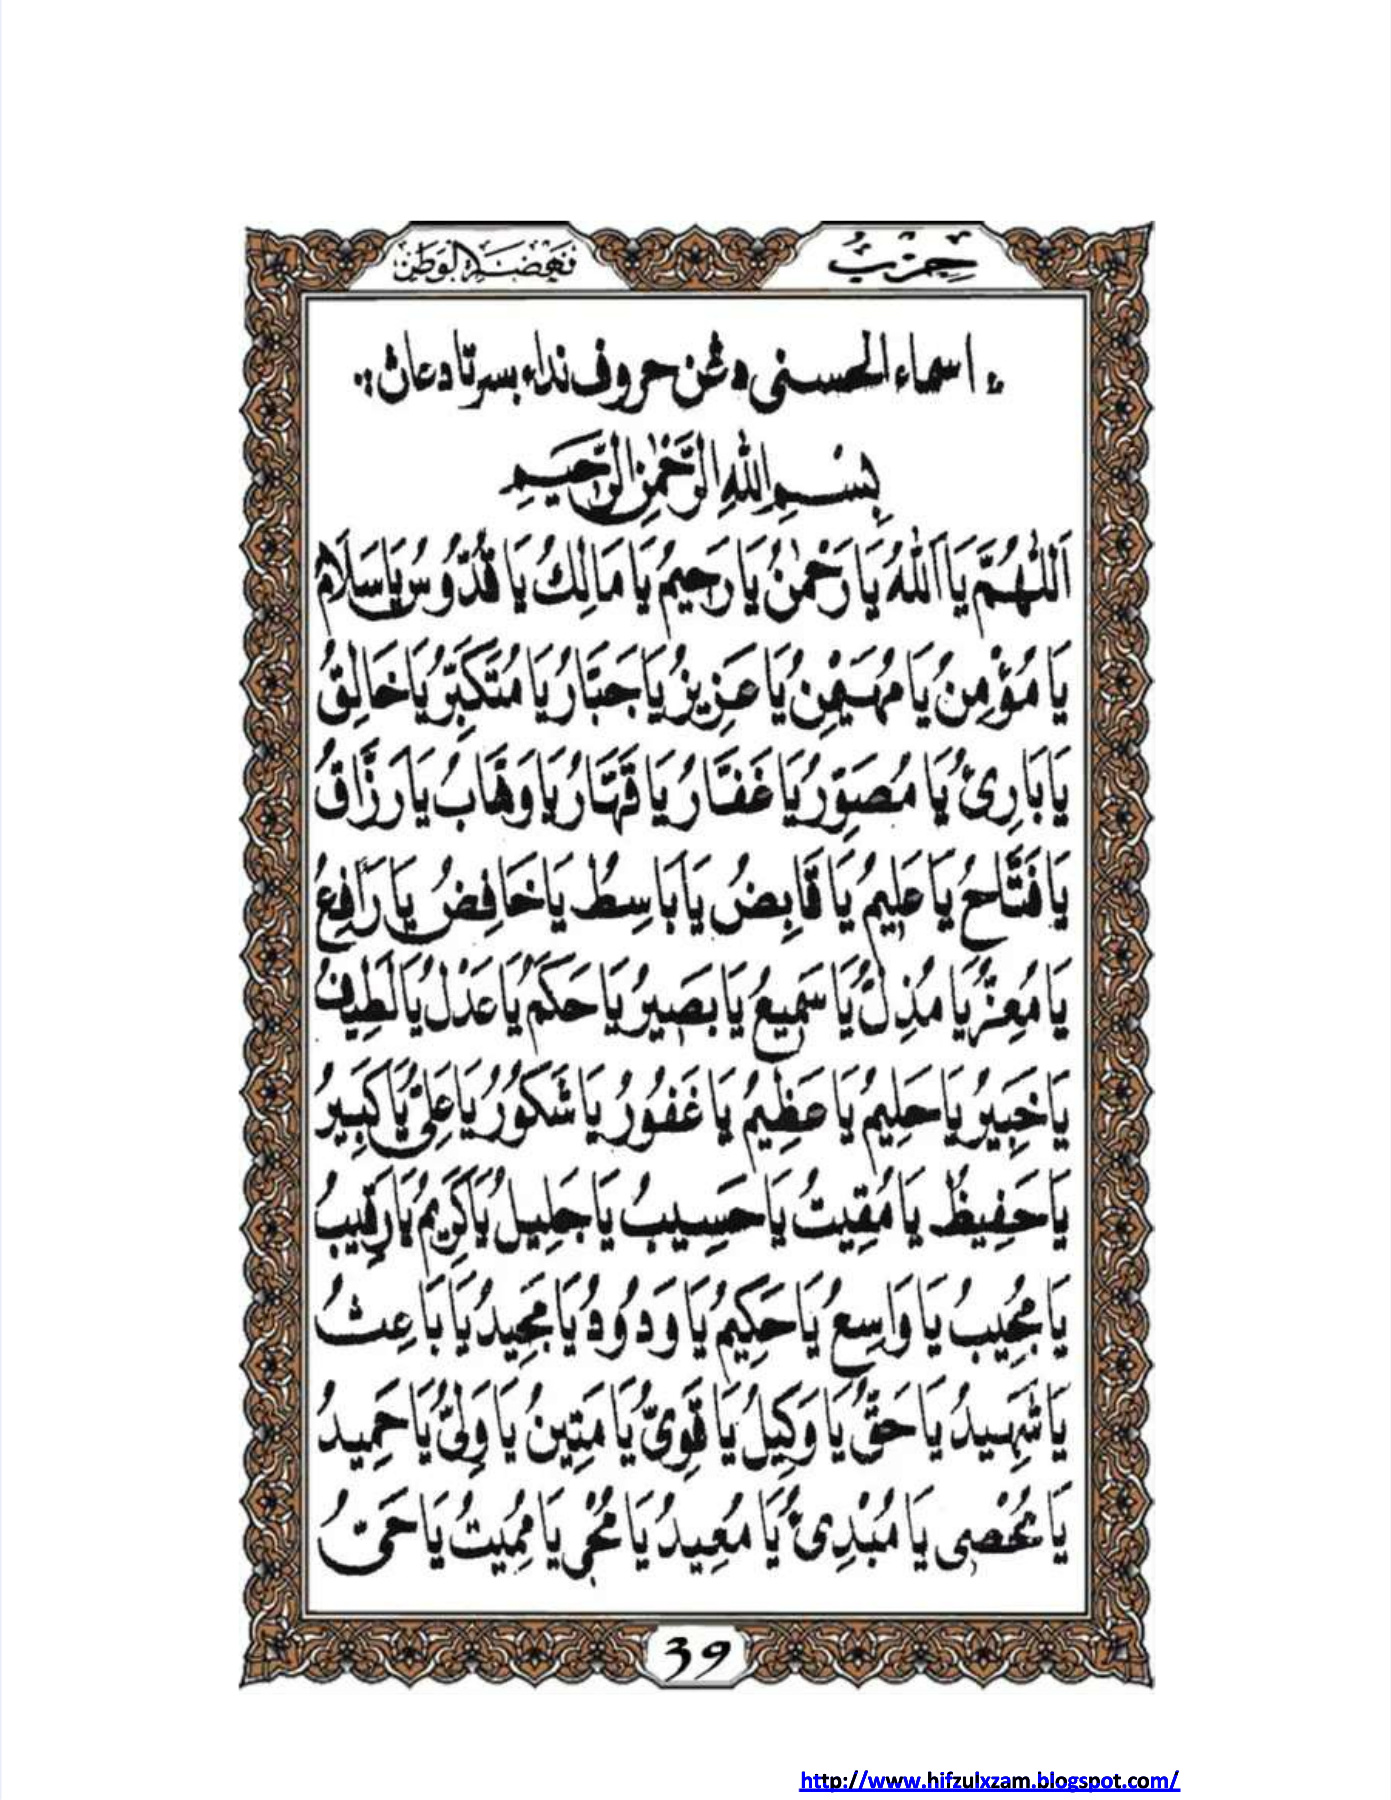 حِزْبُ
نَهْضَةُ الْوَطَنِ
اسماء الحسنى دڠن حروف نداء بسرتا دعاث
بِسْمِ اللهِ الرَّحْمٰنِ الرَّحِيمِ
اَللّٰهُمَّ يَا اَللهُ يَا رَحْمٰنُ يَا رَحِيمُ يَا مَالِكُ يَا قُدُّوسُ يَا سَلَامُ
يَا مُؤْمِنُ يَا مُهَيْمِنُ يَا عَزِيزُ يَا جَبَّارُ يَا مُتَكَبِّرُ يَا خَالِقُ
يَا بَارِئُ يَا مُصَوِّرُ يَا غَفَّارُ يَا قَهَّارُ يَا وَهَّابُ يَا رَزَّاقُ
يَا فَتَّاحُ يَا عَلِيمُ يَا قَابِضُ يَا بَاسِطُ يَا خَافِضُ يَا رَافِعُ
يَا مُعِزُّ يَا مُذِلُّ يَا سَمِيعُ يَا بَصِيرُ يَا حَكَمُ يَا عَدْلُ يَا لَطِيفُ
يَا خَبِيرُ يَا حَلِيمُ يَا عَظِيمُ يَا غَفُورُ يَا شَكُورُ يَا عَلِيُّ يَا كَبِيرُ
يَا حَفِيظُ يَا مُقِيتُ يَا حَسِيبُ يَا جَلِيلُ يَا كَرِيمُ يَا رَقِيبُ
يَا مُجِيبُ يَا وَاسِعُ يَا حَكِيمُ يَا وَدُودُ يَا مَجِيدُ يَا بَاعِثُ
يَا شَهِيدُ يَا حَقُّ يَا وَكِيلُ يَا قَوِيُّ يَا مَتِينُ يَا وَلِيُّ يَا حَمِيدُ
يَا مُحْصِى يَا مُبْدِئُ يَا مُعِيدُ يَا مُحْيِ يَا مُمِيتُ يَا حَيُّ
39
http://www.hifzulxzam.blogspot.com/